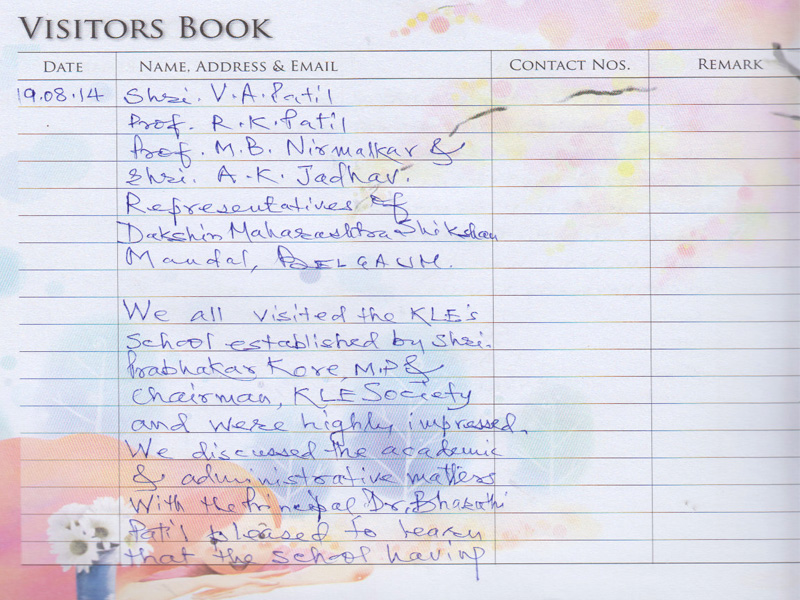 VISITORS BOOK
DATE NAME, ADDRESS & EMAIL CONTACT NOS. REMARK
19.08.14 Shri. V.A. Patil
Prof. R.K. Patil
Prof. M.B. Nirmalkar &
Shri. A.K. Jadhav.
Representatives of
Dakshin Maharashtra Shikshan
Mandal, BELGAUM.
We all visited the KLE's
School established by Shri.
Prabhakar Kore, M.P &
Chairman, KLE Society
and were highly impressed.
We discussed the academic
& administrative matters
With the Principal Dr. Bharathi
Patil pleased to learn
that the school having